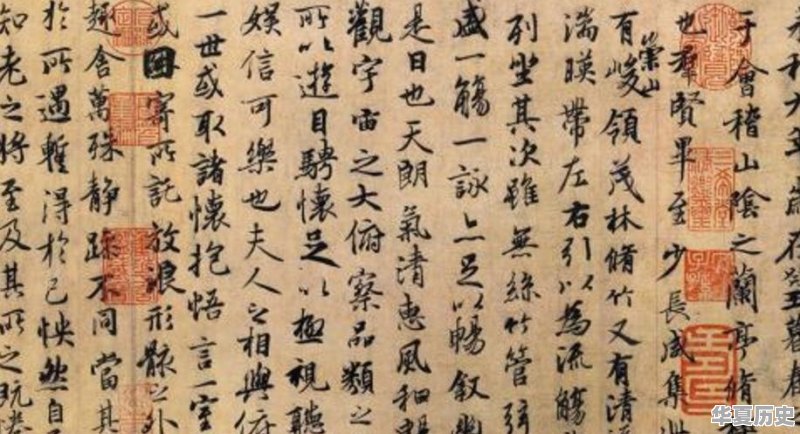 永和九年歲在癸丑暮春
于會稽山陰之蘭亭脩
也羣賢畢至少長咸集此
崇山
有峻領茂林脩竹又有清
湍暎帶左右引以為流觴
列坐其次雖無絲竹管弦
盛一觴一詠亦足以暢叙幽
是日也天朗氣清惠風和暢
觀宇宙之大俯察品類之
所以遊目騁懷足以極視聽
娛信可樂也夫人之相與俯
一世或取諸懷抱悟言一室
或因寄所託放浪形骸之外
趣舍萬殊静躁不同當其
於所遇蹔得於己怏然自
知老之將至及其所之既惓
华夏历史